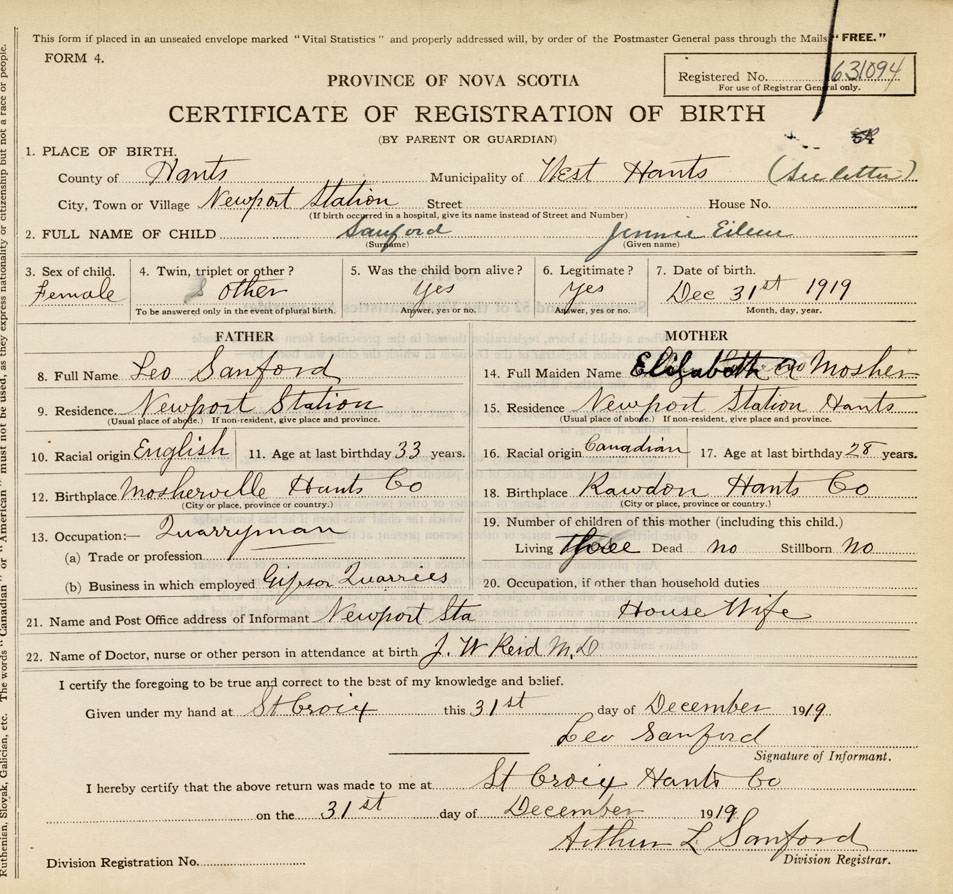 This form if placed in an unsealed envelope marked "Vital Statistics" and properly addressed will, by order of the Postmaster General pass through the Mails "FREE."
FORM 4.
Registered No. 631094
For use of Registrar General only.
PROVINCE OF NOVA SCOTIA
CERTIFICATE OF REGISTRATION OF BIRTH
(BY PARENT OR GUARDIAN)
1. PLACE OF BIRTH.
County of Hants Municipality of West Hants (See letter)
City, Town or Village Newport Station Street House No.
(If birth occurred in a hospital, give its name instead of Street and Number)
2. FULL NAME OF CHILD Sanford Jennie Eileen
(Surname) (Given name)
3. Sex of child. 4. Twin, triplet or other? 5. Was the child born alive? 6. Legitimate? 7. Date of birth.
Female other Yes Yes Dec 31st 1919
To be answered only in the event of plural birth. Answer, yes or no. Answer, yes or no. Month, day, year.
FATHER MOTHER
8. Full Name Leo Sanford 14. Full Maiden Name Elizabeth Mosher
9. Residence Newport Station 15. Residence Newport Station Hants
(Usual place of abode.) If non-resident, give place and province. (Usual place of abode.) If non-resident, give place and province.
10. Racial origin English 11. Age at last birthday 33 years. 16. Racial origin Canadian 17. Age at last birthday 28 years.
12. Birthplace Mosherville Hants Co 18. Birthplace Rawdon Hants Co
(City or place, province or country.) (City or place, province or country.)
13. Occupation:— Quarryman 19. Number of children of this mother (including this child.)
(a) Trade or profession Living three Dead no Stillborn no
(b) Business in which employed Gypson Quarries 20. Occupation, if other than household duties
21. Name and Post Office address of Informant Newport Sta House Wife
22. Name of Doctor, nurse or other person in attendance at birth J. W Reid M.D
I certify the foregoing to be true and correct to the best of my knowledge and belief.
Given under my hand at St Croix this 31st day of December 1919
Leo Sanford
Signature of Informant.
I hereby certify that the above return was made to me at St Croix Hants Co
on the 31st day of December 1919
Arthur L Sanford
Division Registration No. Division Registrar.
Ruthenian, Slovak, Galician, etc. The words "Canadian" or "American" must not be used, as they express nationality or citizenship but not a race or people.